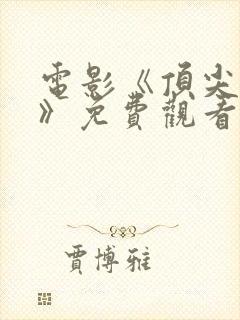 電影《頂尖
》免費觀看
賈博雅